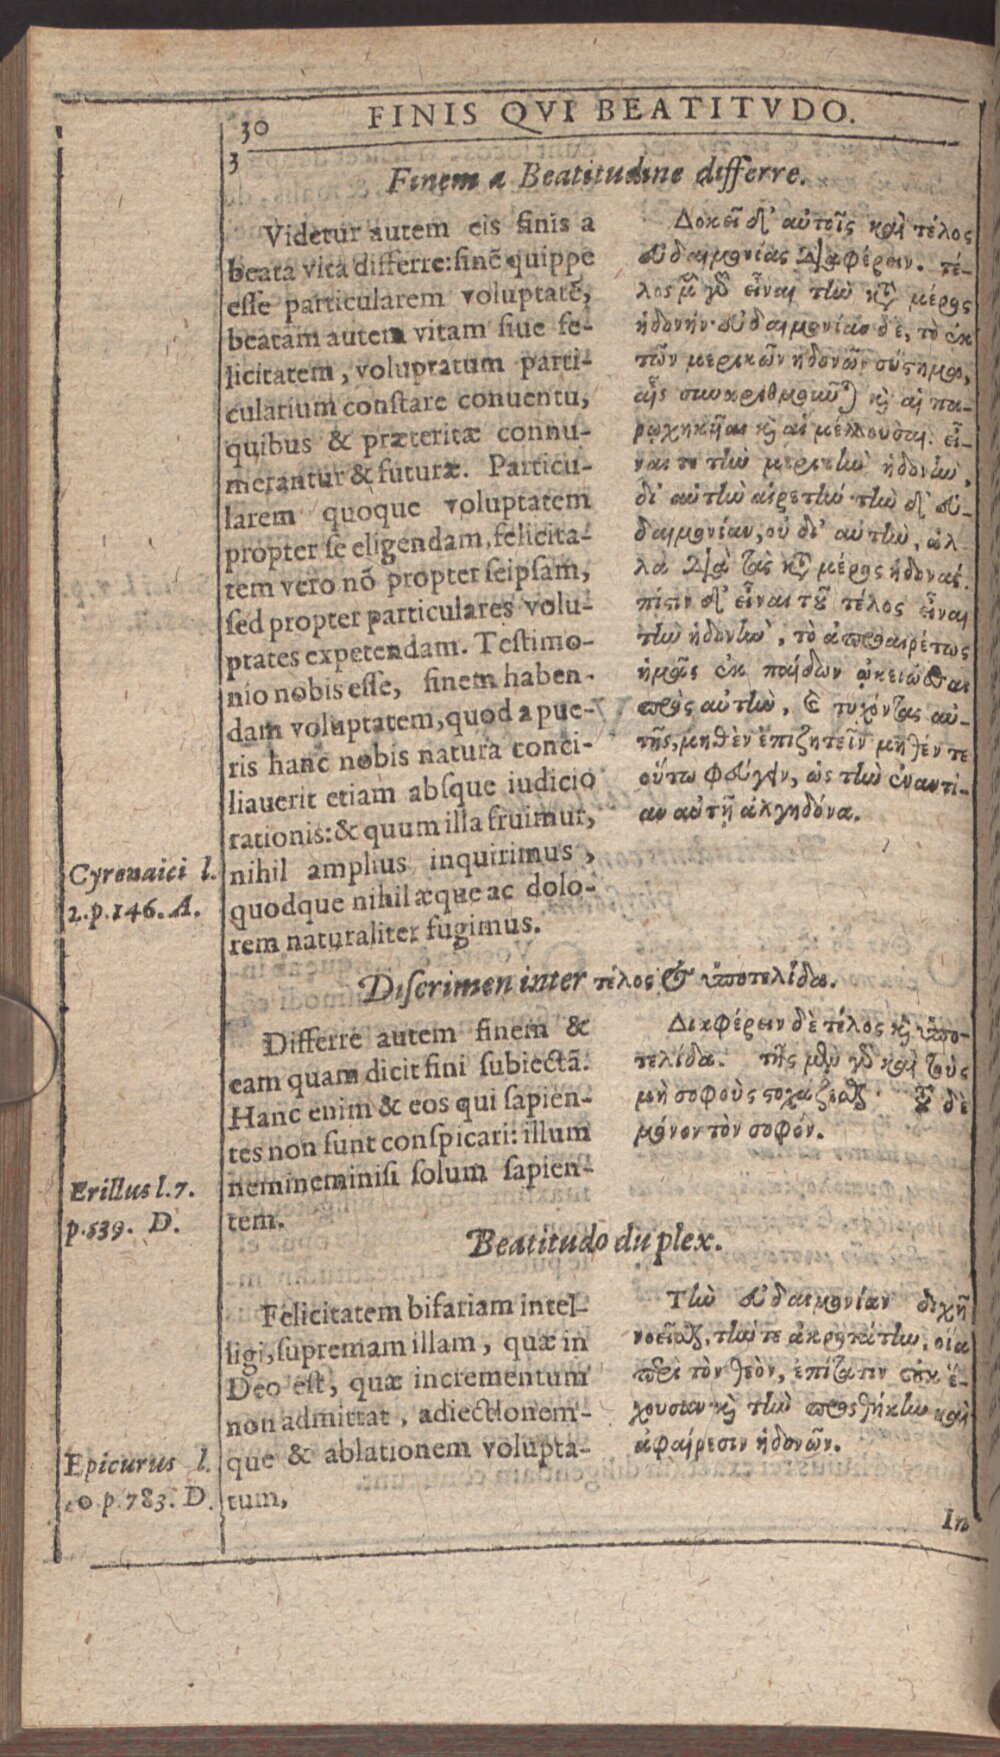 30 FINIS QVI BEATITVDO.
3
Finem a Beatitudine differre.
Videtur autem eis finis a
beata vita differre: finẽ quippe
esse particularem voluptatẽ,
beatam autem vitam siue fe-
licitatem, voluptatum parti-
cularium constare conuentu,
quibus & præteritæ connu-
merantur & futuræ. Particu-
larem quoque voluptatem
propter se eligendam, felicita-
tem vero nõ propter seipsam,
sed propter particulares volu-
ptates expetendam. Testimo-
nio nobis esse, finem haben-
dam voluptatem, quod a pue-
ris hanc nobis natura conci-
liauerit etiam absque iudicio
rationis: & quum illa fruimur,
nihil amplius inquirimus,
quodque nihil æque ac dolo-
rem naturaliter fugimus.
Δοκεῖ δ' αὐτοῖς καὶ τέλος
εὐδαιμονίας διαφέρειν. τέ-
λος μὲν γὰρ εἶναι τὴν κατὰ μέρος
ἡδονήν· εὐδαιμονίαν δὲ, τὸ ἐκ
τῶν μερικῶν ἡδονῶν σύστημα,
αἷς συναριθμοῦνται καὶ αἱ πα-
ρῳχηκυῖαι καὶ αἱ μέλλουσαι. εἶ-
ναί τε τὴν μερικὴν ἡδονὴν,
δι' αὑτὴν αἱρετὴν· τὴν δ' εὐ-
δαιμονίαν, οὐ δι' αὑτὴν, ἀλ-
λὰ διὰ τὰς κατὰ μέρος ἡδονάς.
πίστιν δ' εἶναι τοῦ τέλος εἶναι
τὴν ἡδονὴν, τὸ ἀπροαιρέτως
ἡμᾶς ἐκ παίδων ᾠκειῶσθαι
πρὸς αὐτὴν, καὶ τυχόντας αὐ-
τῆς, μηθὲν ἐπιζητεῖν· μηθέν τε
οὕτω φεύγειν, ὡς τὴν ἐναντί-
αν αὐτῇ ἀλγηδόνα.
Cyrenaici l.
2. p. 146. A.
Discrimen inter τέλος & ὑποτελίδα.
Differre autem finem &
eam quam dicit fini subiectã.
Hanc enim & eos qui sapien-
tes non sunt conspicari: illum
nemineminisi solum sapien-
tem.
Διαφέρειν δὲ τέλος καὶ ὑπο-
τελίδα. τῆς μὲν γὰρ καὶ τοὺς
μὴ σοφοὺς στοχάζεσθαι· τοῦ δὲ
μόνον τὸν σοφόν.
Erillus l. 7.
p. 539. D.
Beatitudo duplex.
Felicitatem bifariam intel-
ligi, supremam illam, quæ in
Deo est, quæ incrementum
non admittat, adiectionem-
que & ablationem volupta-
tum,
Τὴν εὐδαιμονίαν διχῆ
νοεῖσθαι, τήν τε ἀκροτάτην, οἵα
περὶ τὸν θεὸν, ἐπίτασιν οὐκ ἔ-
χουσαν· καὶ τὴν προσθήκην καὶ
ἀφαίρεσιν ἡδονῶν.
Epicurus l.
10. p. 783. D.
In